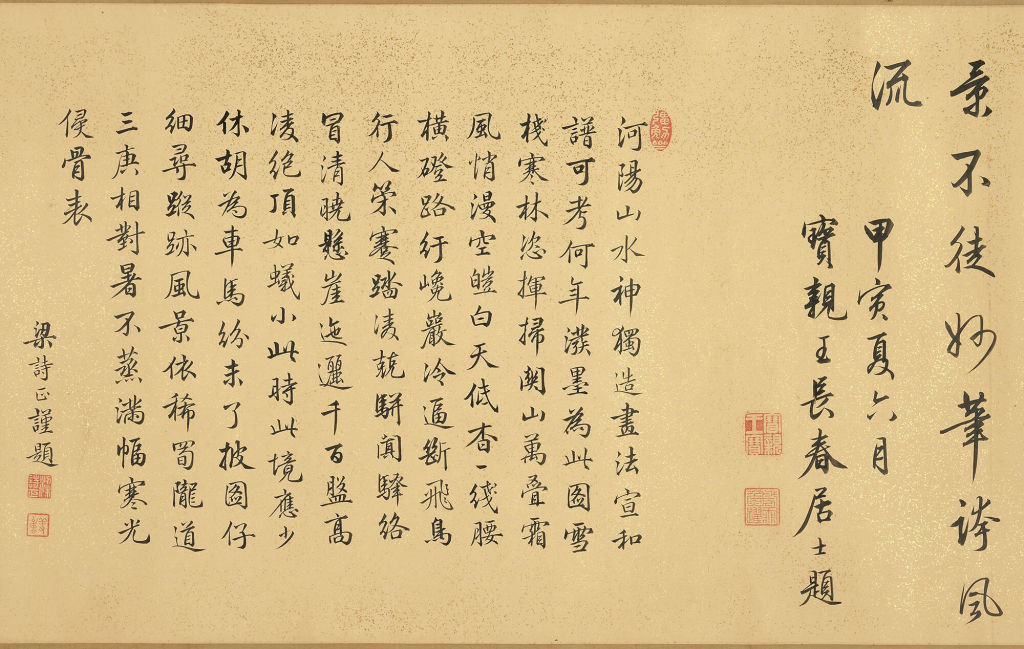 景不徒妙筆誇風
流
甲寅夏六月
寶親王長春居士題
河陽山水神獨造畫法宣和
譜可考何年潑墨為此圖雪
棧寒林恣揮掃關山萬疊霜
風悄漫空皚白天低杳一綫腰
橫磴路紆巉巖冷逼斷飛鳥
行人策蹇踏凌兢駢闐驛絡
冒清曉懸崖迤邐千百盤高
凌絕頂如蟻小此時此境應少
休胡為車馬紛未了披圖仔
細尋蹤跡風景依稀蜀隴道
三庚相對暑不蒸滿幅寒光
侵骨表
梁詩正謹題